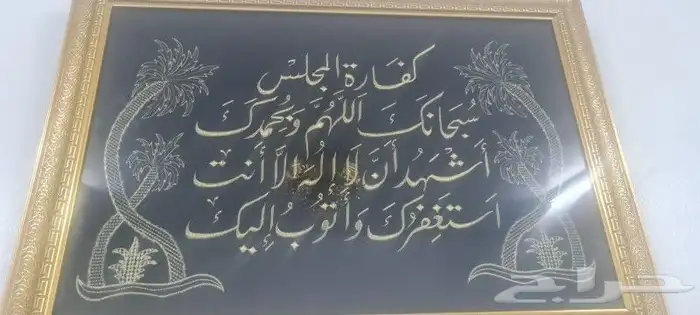 كفارة المجلس
سُبحَانكَ اللَّهُمَّ وَبُحمدكَ
أشهَدُ أنَّ لا إله إلاَّ أنت
استَغفِرُكَ وَأتوبُ إليك
حراج